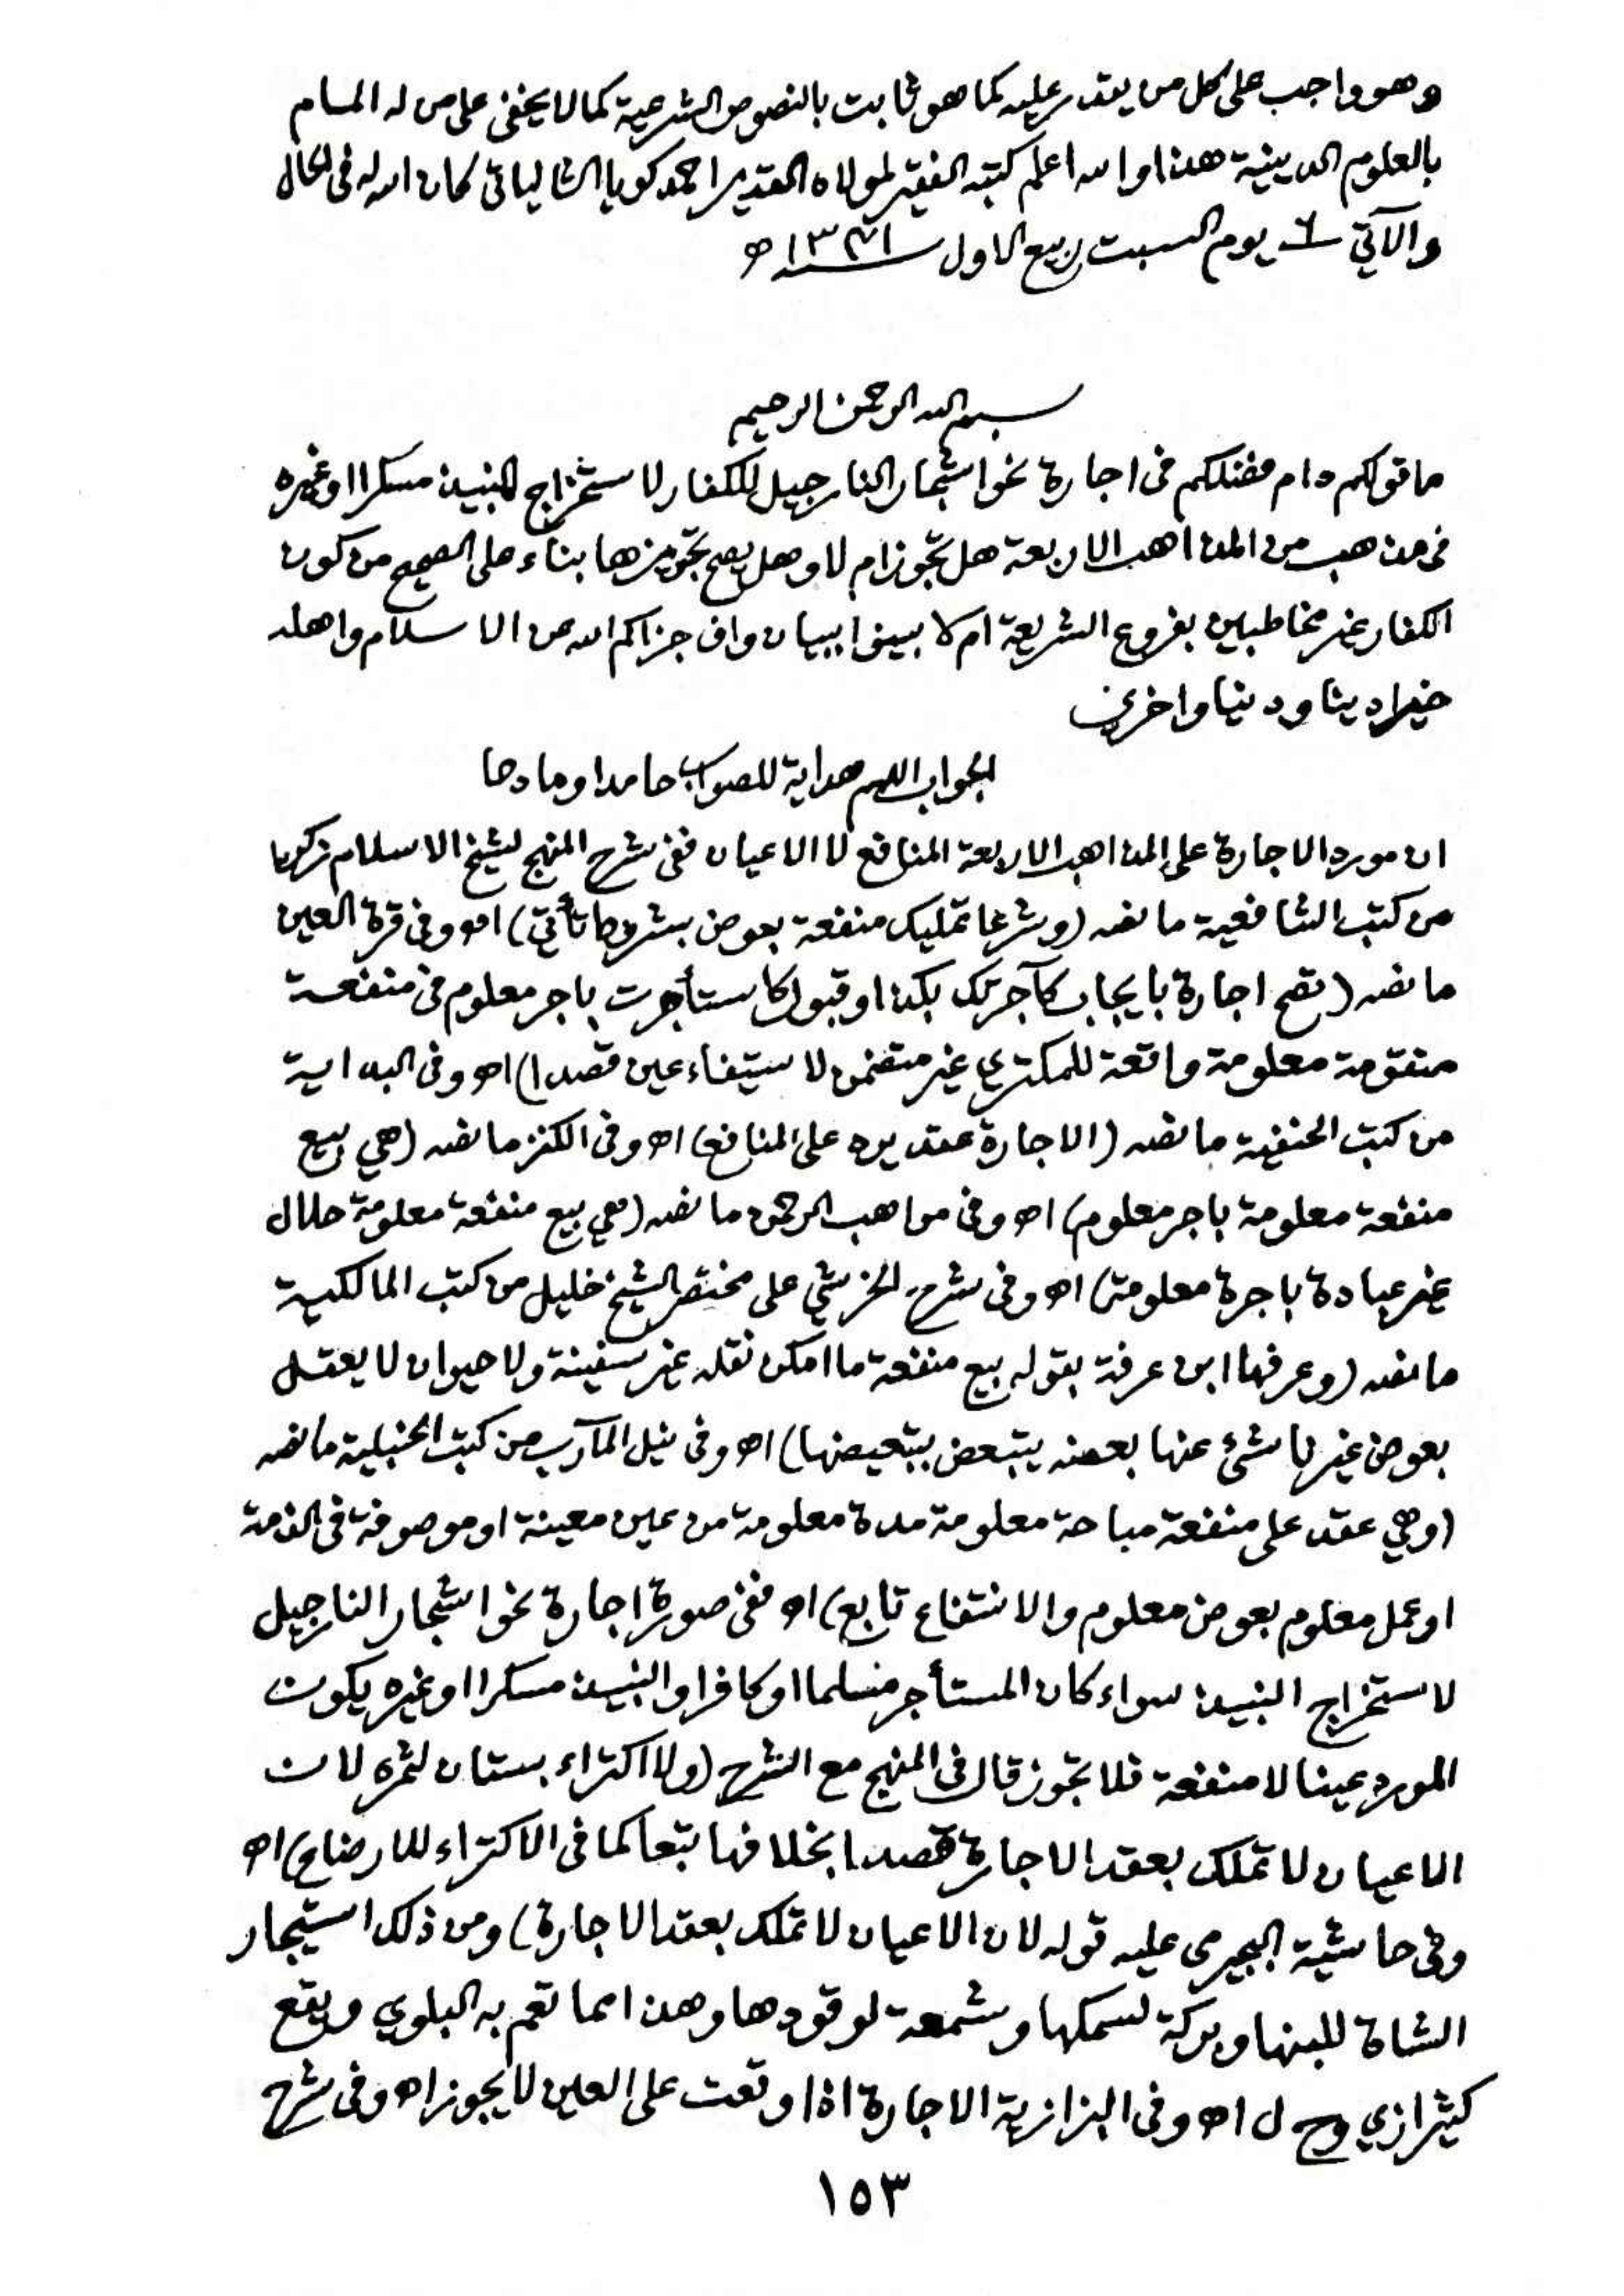 وهو واجب على كل من يقدر عليه كما هو ثابت بالنصوص الشرعية كما لا يخفى على من له المام
بالعلوم الدينية هذا والله اعلم كتبه الفقير لمولاه القدير احمد كويا الشالياتي كان الله له في الحال
والآتي ٦ يوم السبت ربيع الاول ھ
بسم الله الرحمن الرحيم
ما قولكم دام فضلكم في اجارة نحو اشجار النارجيل للكفار لاستخراج النبيذ مسكرا او غيره
في مذهب من المذاهب الاربعة هل تجوز ام لا وهل يصح تجويزها بناء على الصحيح من كون
الكفار غير مخاطبين بفروع الشريعة ام لا بينوا ببيان واف جزاكم الله عن الاسلام واهله
خيرا دينا ودنيا واخرى
الجواب اللهم هداية للصواب حامدا ومادحا
ان مورد الاجارة على المذاهب الاربعة المنافع لا الاعيان ففي شرح المنهج لشيخ الاسلام زكريا
من كتب الشافعية ما نصه (وشرعا تمليك منفعة بعوض بشروط تأتي) اھ وفي قرة العين
ما نصه (تصح اجارة بايجاب كآجرتك بكذا وقبول كاستأجرت باجر معلوم في منفعة
متقومة معلومة واقعة للمكتري غير متضمن لاستيفاء عين قصدا) اھ وفي البداية
من كتب الحنفية ما نصه (الاجارة عقد يرد على المنافع) اھ وفي الكنز ما نصه (هي بيع
منفعة معلومة باجر معلوم) اھ وفي مواهب الرحمن ما نصه (هي بيع منفعة معلومة حلال
غير عبادة باجرة معلومة) اھ وفي شرح الخرشي على مختصر الشيخ خليل من كتب المالكية
ما نصه (وعرفها ابن عرفة بقوله بيع منفعة ما امكن نقله غير سفينة ولا حيوان لا يعقل
بعوض غير ناشئ عنها بعضه يتبعض بتبعيضها) اھ وفي نيل المآرب من كتب الحنبلية ما نصه
(وهي عقد على منفعة مباحة معلومة مدة معلومة من عين معينة او موصوفة في الذمة
او عمل معلوم بعوض معلوم والانتفاع تابع) اھ ففي صورة اجارة نحو اشجار النارجيل
لاستخراج النبيذ سواء كان المستأجر مسلما او كافرا والنبيذ مسكرا او غيره يكون
المورد عينا لا منفعة فلا تجوز قال في المنهج مع الشرح (ولا اكتراء بستان لثمره لان
الاعيان لا تملك بعقد الاجارة قصدا بخلافها تبعا كما في الاكتراء للارضاع) اھ
وفي حاشية البجيرمي عليه قوله لان الاعيان لا تملك بعقد الاجارة) ومن ذلك استيجار
الشاة للبنها وبركة لسمكها وشمعة لوقودها وهذا مما تعم به البلوي ويقع
كثيرا زي وح ل اھ وفي البزازية الاجارة اذا وقعت على العين لا يجوز اھ وفي شرح
١٥٣